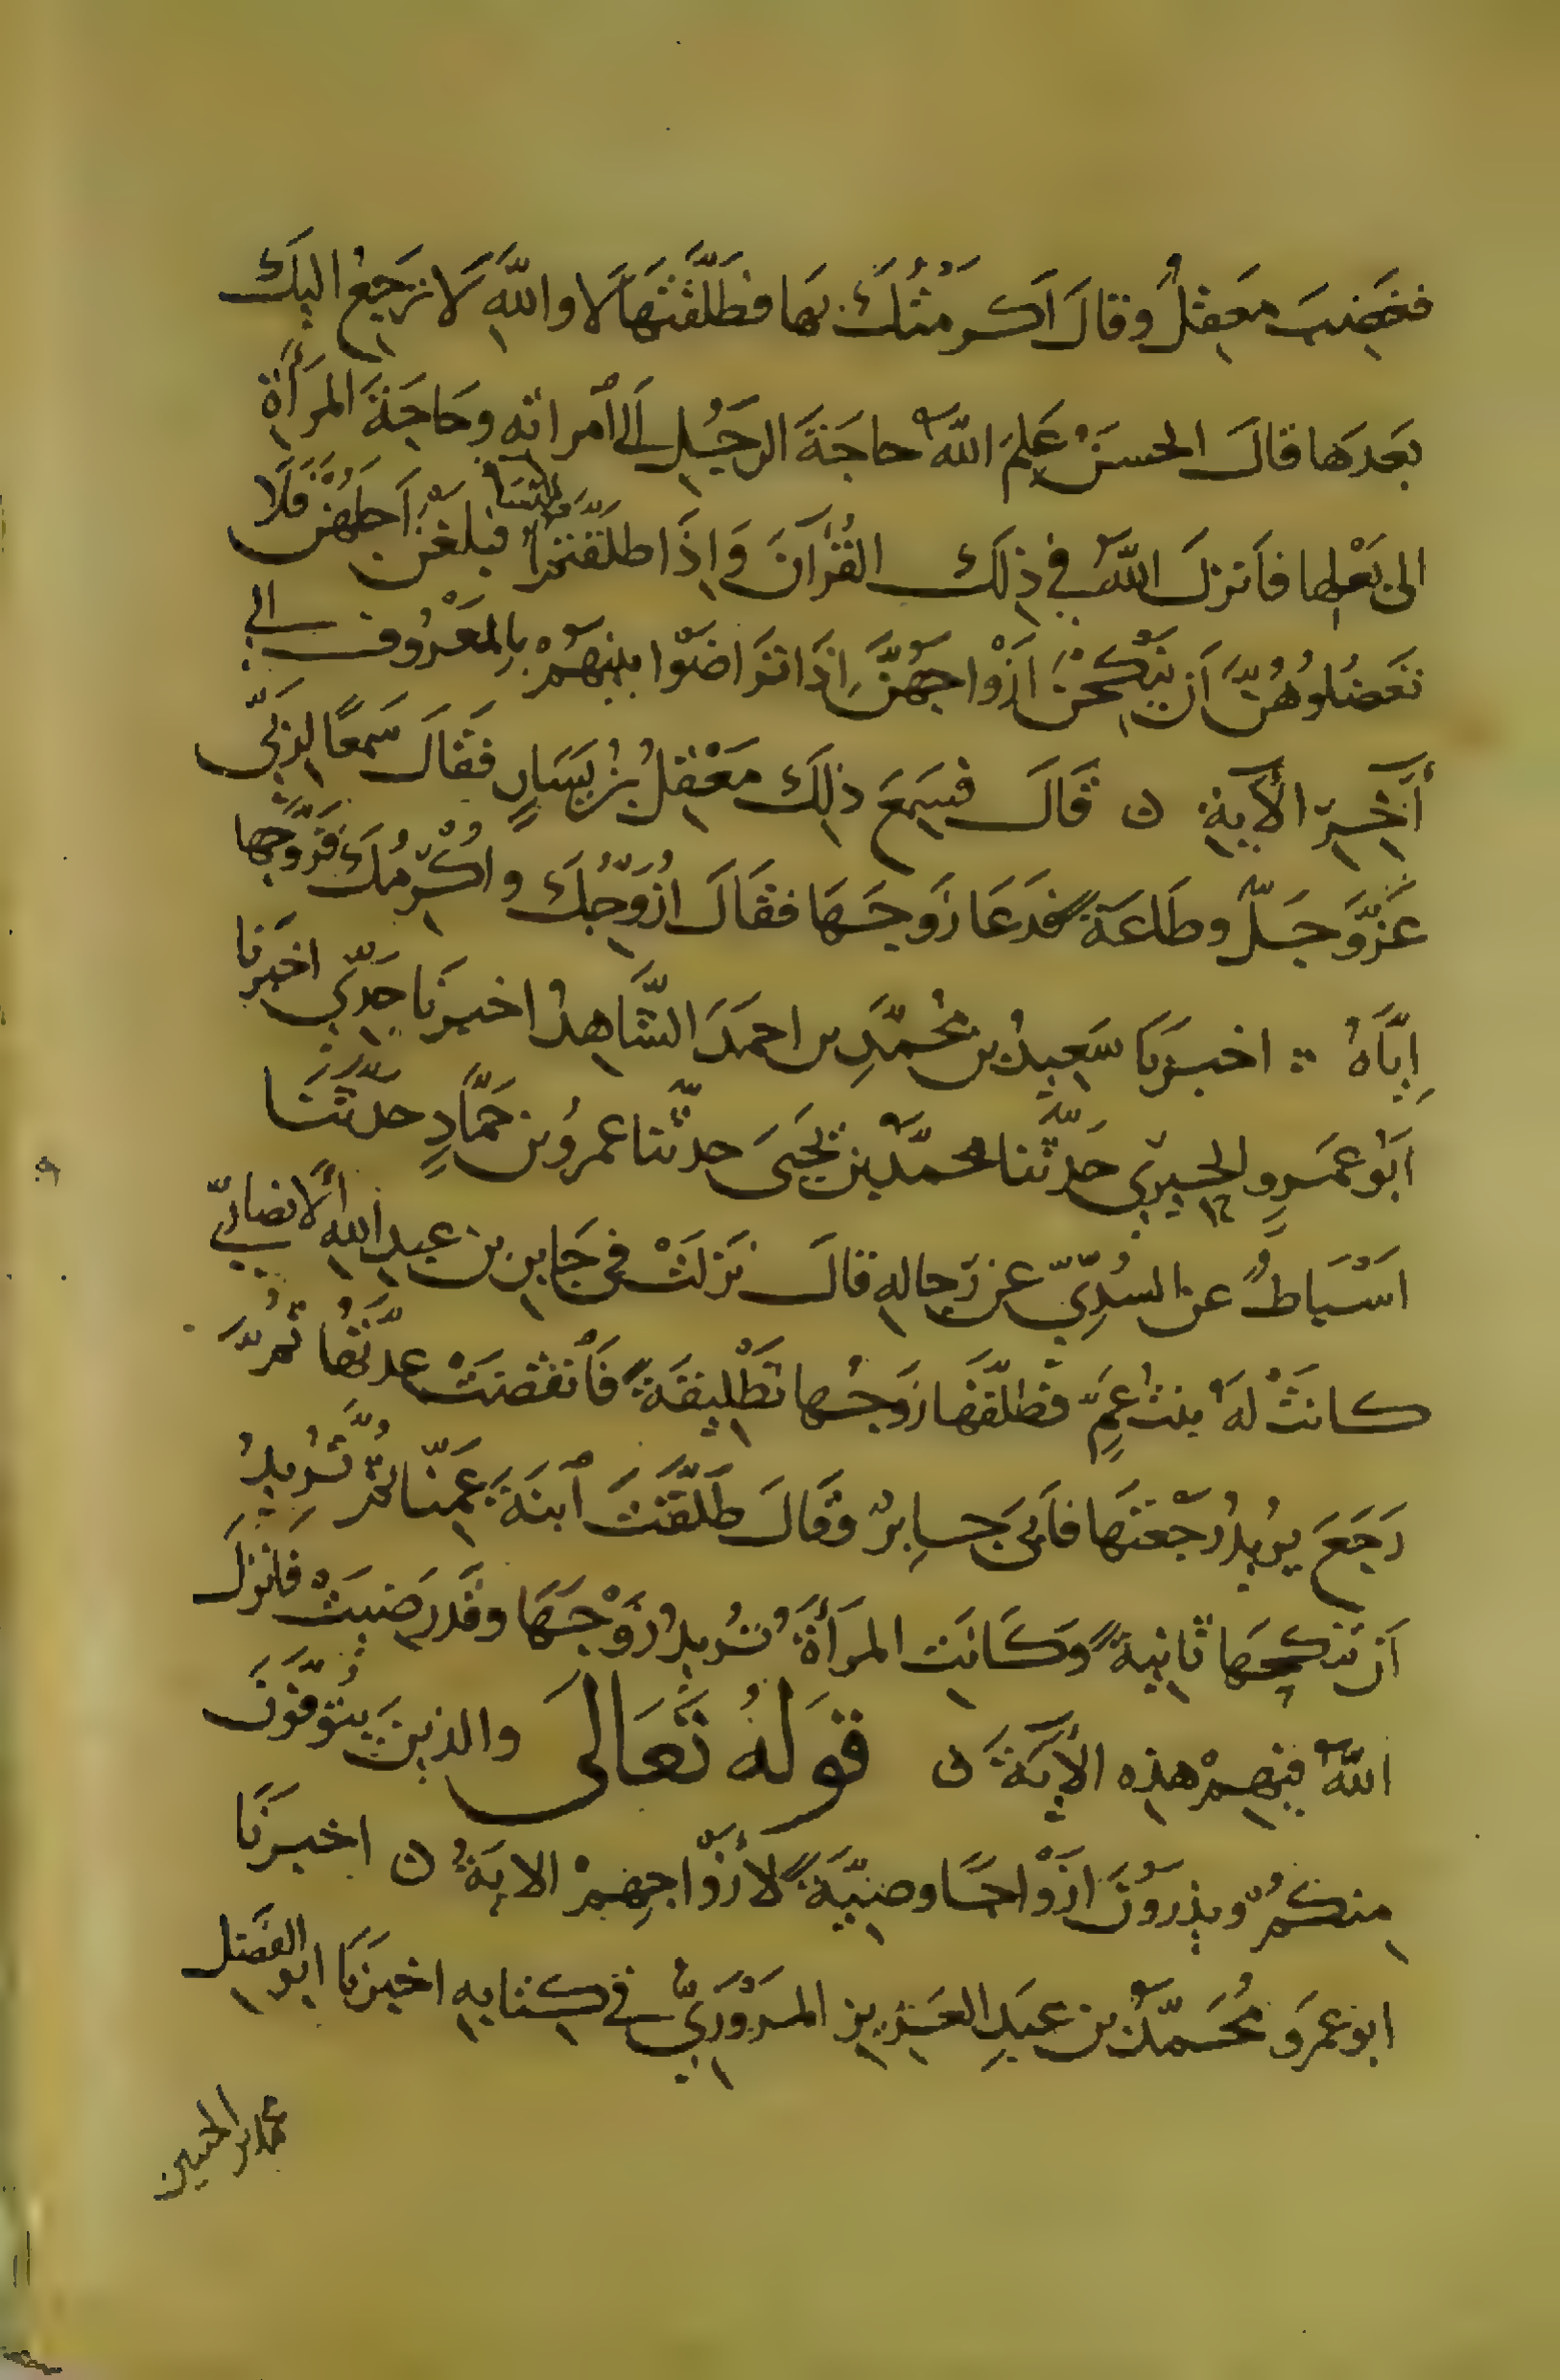 فغضب معقلٌ وقال اكرمتُكَ بها فطلَّقْتَها لا واللهِ لا ترجع اليك
بعدها قال الحسنُ علم اللهُ حاجة الرجُل الى امراته وحاجة المرأة
الى بعلها فانزل اللهُ في ذلك القرآنَ وَاِذَا طلّقتم النسا فبلغن اجلهن فلا
تعضلوهُنّ أن ينكحن ازواجهُنّ اِذا تراضوا بينهم بالمعروف الى
آخر الآية ن قال فسمع ذلك معقلُ بنُ يسارٍ فقال سَمعًا لِربّي
عزّ وجلّ وطاعةً فدعا زوجها فقال ازوّجُك واُكرّمُك فزوّجها
اِيّاهُ ؞ اخبرنا سعيدُ بن محمّدِ بن احمدَ الشّاهدُ اخبرنا جدّي اخبرنا
ابو عمرٍو الحيريّ حدّثنا محمّد بن يحيى حدثنا عمرُو بن حمّادٍ حدّثنا
اسْباطٌ عن السُدّيّ عن رجاله قال نزلتْ فى جابر بن عبد الله الأنصاريّ
كانتْ لهُ بنتُ عمٍّ فطلّقها زوجُها تَطْلِيقةً فانقضتْ عدّتُها ثُمّ
رجعَ يريدُ رجْعتها فابى جابرٌ وقال طلّقتَ ابنةَ عمّنا ثمّ تُريدُ
ان تنكحها ثانيةً وكانت المرأةُ تُريدُ زوْجها وقد رضيتْ فانزل
اللهُ فيهم هذه الأيةَ ن قوله تعالى والذين يتوفّون
منكُمْ ويذرُونَ ازْواجًا وصيّةً لأزواجهمْ الايةُ ن اخبرنا
ابو عمرو محُمّدُ بن عبد العزيز المرْوَزيّ في كتابه اخبرنا ابو الفضل
محمد بن الحسين